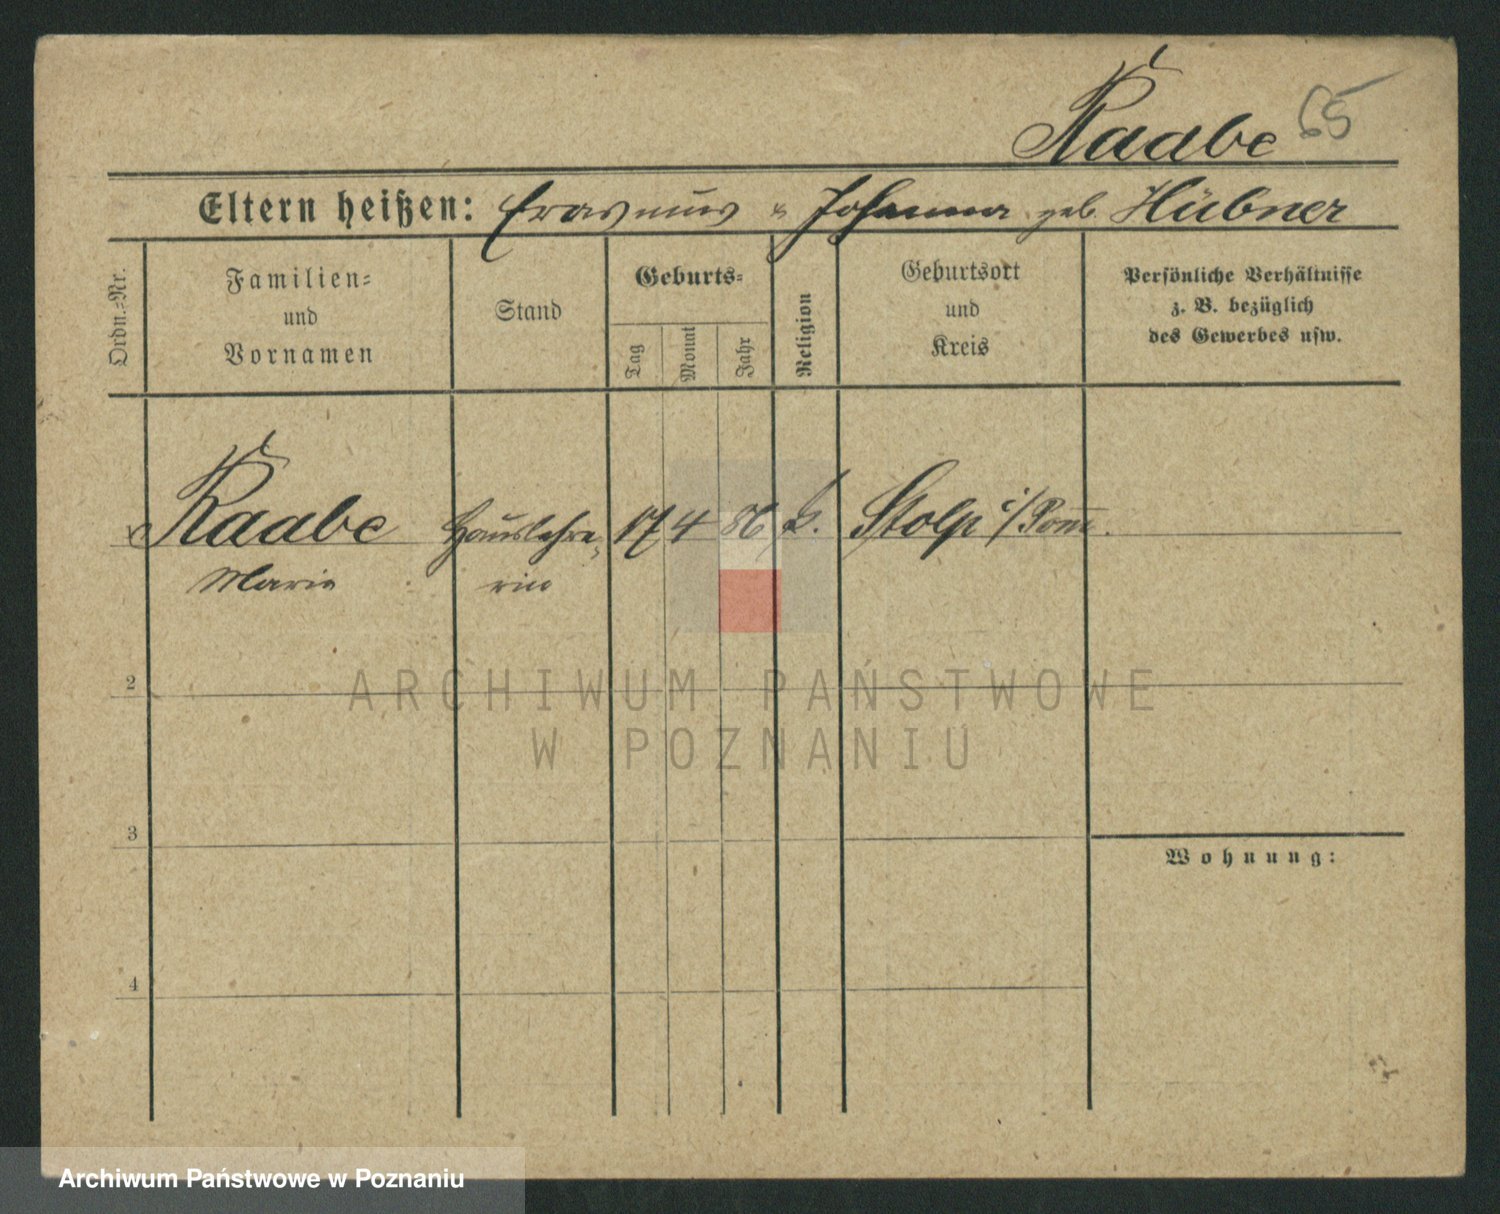 Raabe 65
Eltern heißen: Erasmus u Johanna geb. Hübner
Ordn.-Nr.
Familien-
und
Vornamen
Stand
Geburts-
Tag
Monat
Jahr
Religion
Geburtsort
und
Kreis
Persönliche Verhältnisse
z. B. bezüglich
des Gewerbes usw.
Raabe Hauslehre- 17 4 86 Stolp i/Pom.
Marie rin
2
ARCHIWUM PAŃSTWOWE
W POZNANIU
3
Wohnung:
4
Archiwum Państwowe w Poznaniu